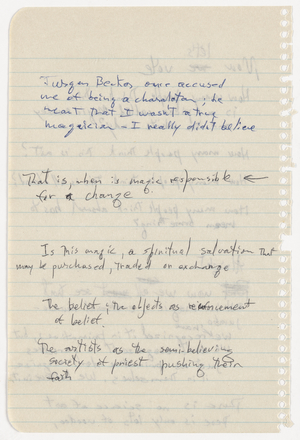 Jurgen Becker once accused
me of being a charalatan; he
meant that I wasn't a true
magician - I really didn't believe
That is, when is magic responsible ←
for a change
Is this magic, a spiritual salvation that
may be purchased, traded or exchange
The belief; the objects as
of belief.
The artists as the semi-believing
society of priest pushing their
faith